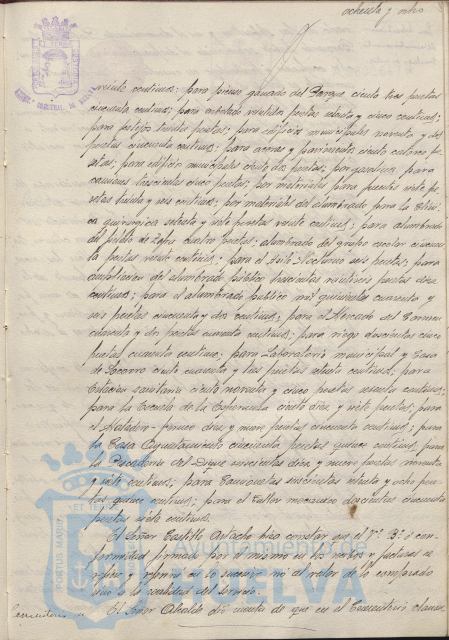 ochenta y ocho
veinte centimos; para piensos ganado del Parque ciento tres pesetas
cincuenta centimos; para arbolado veintidos pesetas setenta y cinco centimos;
para festejos treinta pesetas; para edificios municipales noventa y dos
pesetas cincuenta centimos; para aceras y pavimentos ciento catorce pe-
setas; para edificios municipales ciento dos pesetas; por gasolina para
camiones trescientas cinco pesetas; por materiales para puentes siete pe-
setas treinta y seis centimos; por materiales del alumbrado para la Clini-
ca quirurgica setenta y siete pesetas veinte centimos; para alumbrado
del cuatro pesetas; alumbrado del grupo escolar cincuen-
ta pesetas veinte centimos; para el Asilo Nocturno seis pesetas; para
ampliacion del alumbrado publico trescientas veintiseis pesetas diez
centimos; para el alumbrado publico mil quinientas cuarenta y
seis pesetas cincuenta y dos centimos; para el Mercado del Carmen
cincuenta y dos pesetas cuarenta centimos; para riego doscientas cinco
pesetas cuarenta centimos; para Laboratorio municipal y Casa
de Socorro ciento cuarenta y tres pesetas setenta centimos; para
Estacion sanitaria ciento noventa y cinco pesetas sesenta centimos;
para la Escuela de la Esperanza ciento diez y siete pesetas; para
el Matadero diez y nueve pesetas cincuenta centimos; para
la Casa Ayuntamiento cincuenta pesetas quince centimos; para
la Pescaderia del Dique seiscientas diez y nueve pesetas noventa
y siete centimos; para seiscientas setenta y ocho pese-
tas quince centimos; para el Taller mecanico doscientas cincuenta
pesetas siete centimos.
El Señor Castillo hizo constar que el Vº Bº y con-
formidad firmado por el mismo en los recibos y facturas se
refiere y referirá en lo sucesivo no al valor de lo comprado
sino a la realidad del servicio.
El Señor Alcalde dio cuenta de que en el
PORTUS MARIS
ET TERRAE
Ayuntamiento de
HUELVA